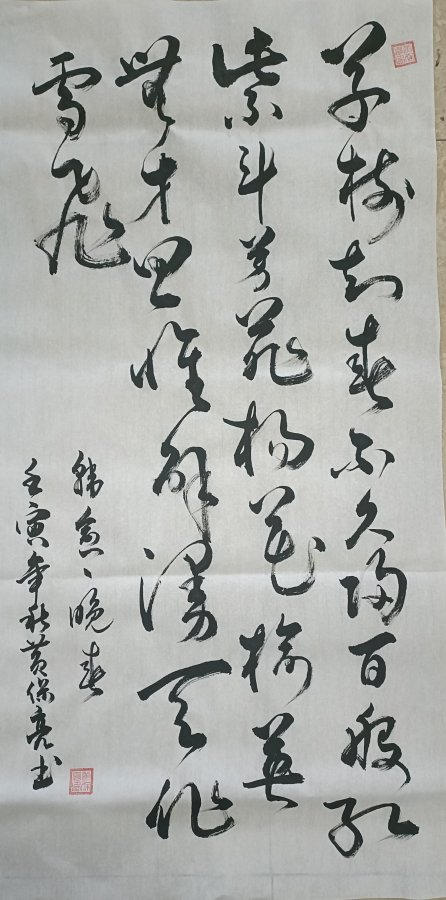 草树知春不久归百般红
紫斗芳菲杨花榆荚
無才思惟解漫天作
雪飛
韩愈、晚春
壬寅年秋黄保亮书